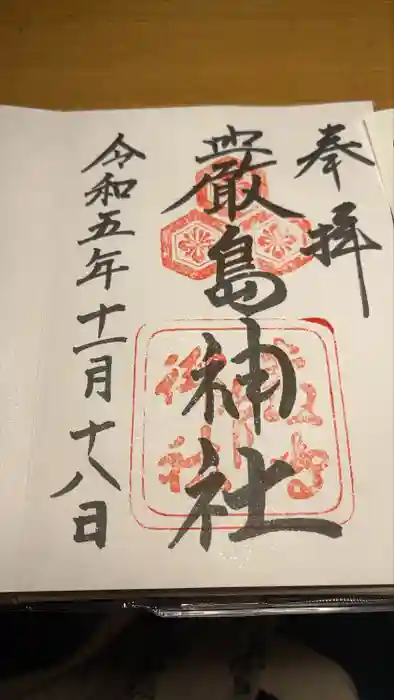 奉拝
厳島神社
令和五年十一月十八日